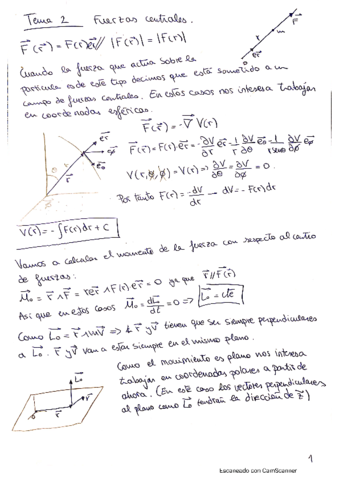 Tema 2 Fuerzas centrales.
F⃗(r⃗) = F(r) e⃗r // |F⃗(r)| = |F(r)|
F⃗
m
r
e⃗r
O
Cuando la fuerza que actúa sobre la
partícula es de este tipo decimos que está sometido a un
campo de fuerzas centrales. En estos casos nos interesa trabajar
en coordenadas esféricas.
F⃗(r) = -∇⃗ V(r)
F⃗(r) = F(r) e⃗r = -∂V/∂r e⃗r - 1/r ∂V/∂θ e⃗θ - 1/(r senθ) ∂V/∂φ e⃗φ
V(r,θ,φ) = V(r) ⇒ ∂V/∂θ = ∂V/∂φ = 0.
Por tanto F(r) = -dV/dr → dV = -F(r)dr
e⃗r
e⃗φ
e⃗θ
θ
r⃗
φ
V(r) = -∫F(r)dr + C
Vamos a calcular el momento de la fuerza con respecto al centro
de fuerzas:
M⃗o = r⃗ ∧ F⃗ = r e⃗r ∧ F(r) e⃗r = 0 ya que r⃗ // F⃗(r)
Así que en estos casos M⃗o = dL⃗/dt = 0 ⇒ L⃗o = cte
Como L⃗o = r⃗ ∧ mv⃗ ⇒ r⃗ y v⃗ tienen que ser siempre perpendiculares
a L⃗o. r⃗ y v⃗ van a estar siempre en el mismo plano.
Como el movimiento es plano nos interesa
trabajar en coordenadas polares a partir de
ahora. (En este caso los vectores perpendiculares
al plano como L⃗o tendrán la dirección de z⃗)
L⃗o
r⃗
v⃗
1
Escaneado con CamScanner